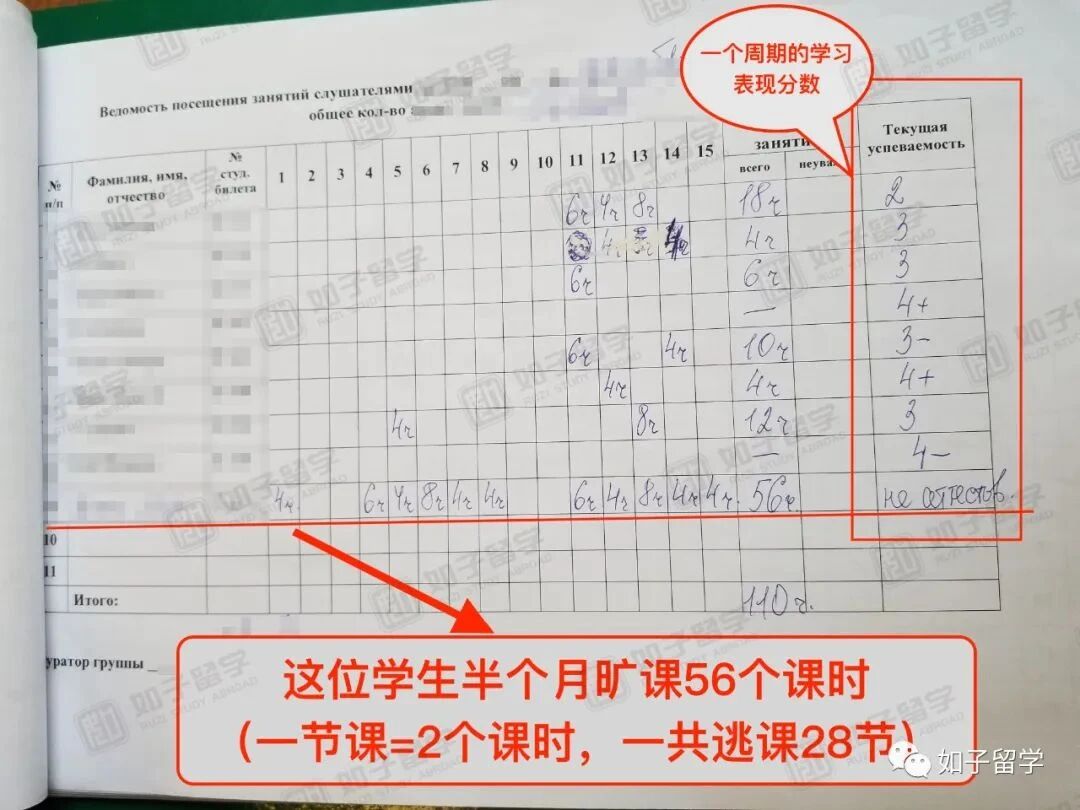 一个周期的学习
表现分数
Ведомость посещения занятий слушателями
общее кол-во
№ п/п
Фамилия, имя, отчество
№ студ. билета
1 2 3 4 5 6 7 8 9 10 11 12 13 14 15
заняти
всего
неува
Текущая успеваемость
6ч 4ч 8ч 18ч 2
4ч 4ч 3
6ч 6ч 3
— 4+
6ч 4ч 10ч 3-
4ч 4ч 4+
4ч 8ч 12ч 3
— 4-
4ч. 6ч 4ч 8ч 4ч 4ч 6ч 4ч 8ч 4ч 4ч. 56ч. не аттестов.
10
11
Итого: 110ч.
уратор группы
这位学生半个月旷课56个课时
（一节课=2个课时，一共逃课28节）
如子留学
RUZI STUDY ABROAD
如子留学